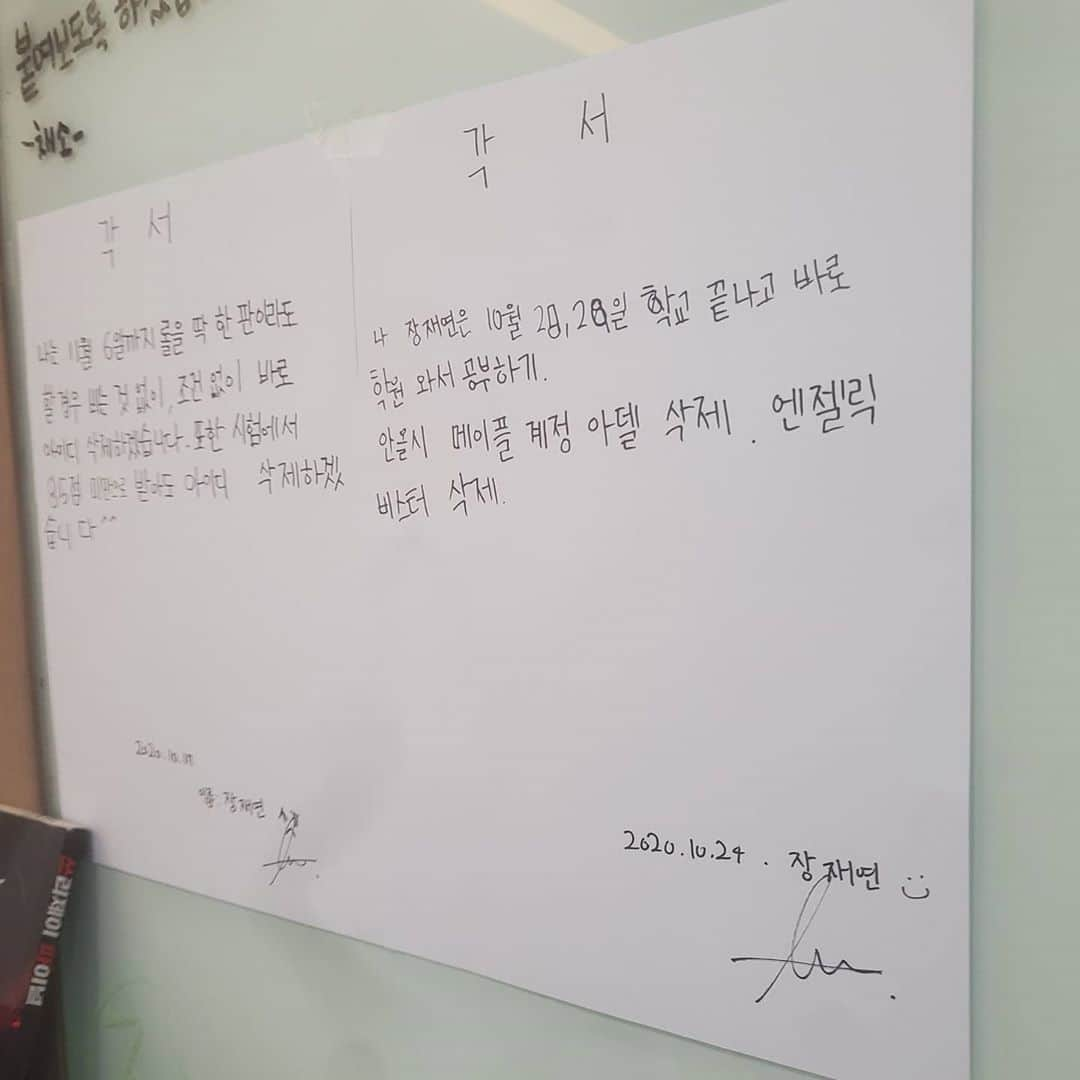 붙여보도록 하겠습
-채소-
각 서
나는 11월 6일까지 롤을 딱 한 판이라도
할경우 빠는 것 없이, 조건 없이 바로
아이디 삭제하겠습니다. 또한 시험에서
85점 미만으로 받아도 아이디 삭제하겠
습니다^^
2020.10.17
이름: 장재연
각 서
나 장재연은 10월 28일 학교 끝나고 바로
학원 와서 공부하기.
안올시 메이플 계정 아델 삭제. 엔젤릭
바스터 삭제.
2020.10.24. 장재연